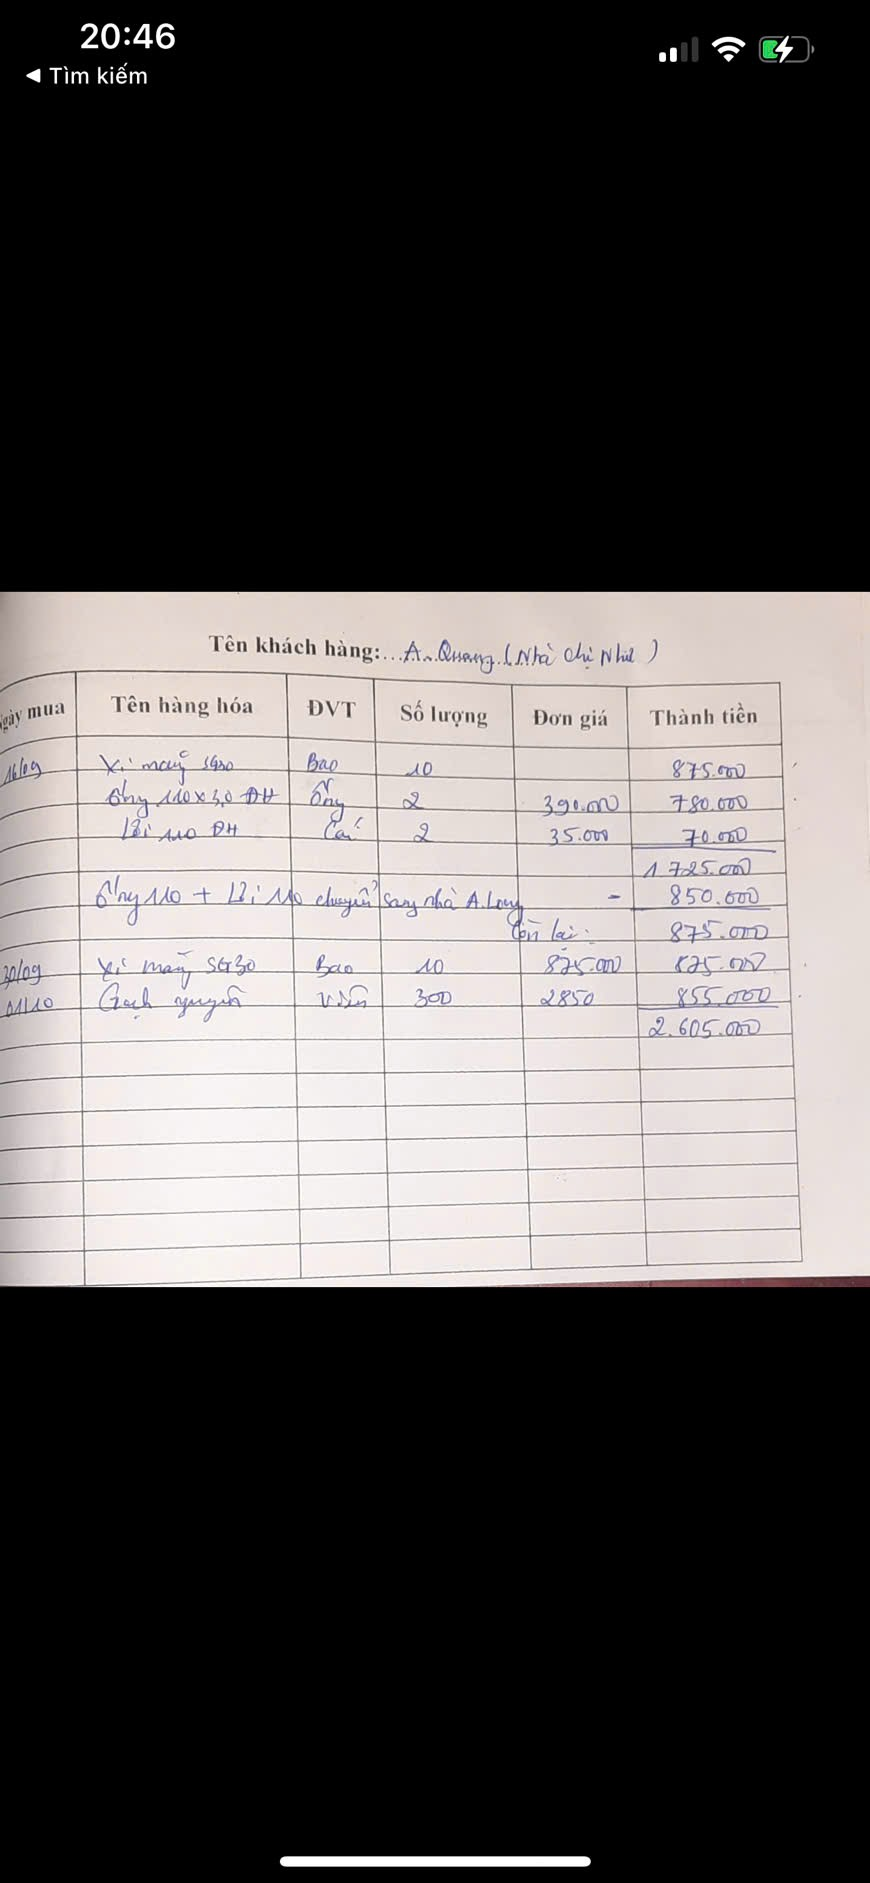 20:46
◀ Tìm kiếm
Tên khách hàng:...A. Quang (Nhà chị Nhu)
Ngày mua Tên hàng hóa ĐVT Số lượng Đơn giá Thành tiền
16/09 Xi măng SG30 Bao 10 875.000
Ống 110 x 3,0 ĐH Ống 2 390.000 780.000
Lơi 110 ĐH Cái 2 35.000 70.000
1.725.000
Ống 110 + Lơi 110 chuyển sang nhà A. Long - 850.000
Còn lại: 875.000
30/09 Xi măng SG30 Bao 10 875.000 875.000
01/10 Gạch nguyên Viên 300 2850 855.000
2.605.000